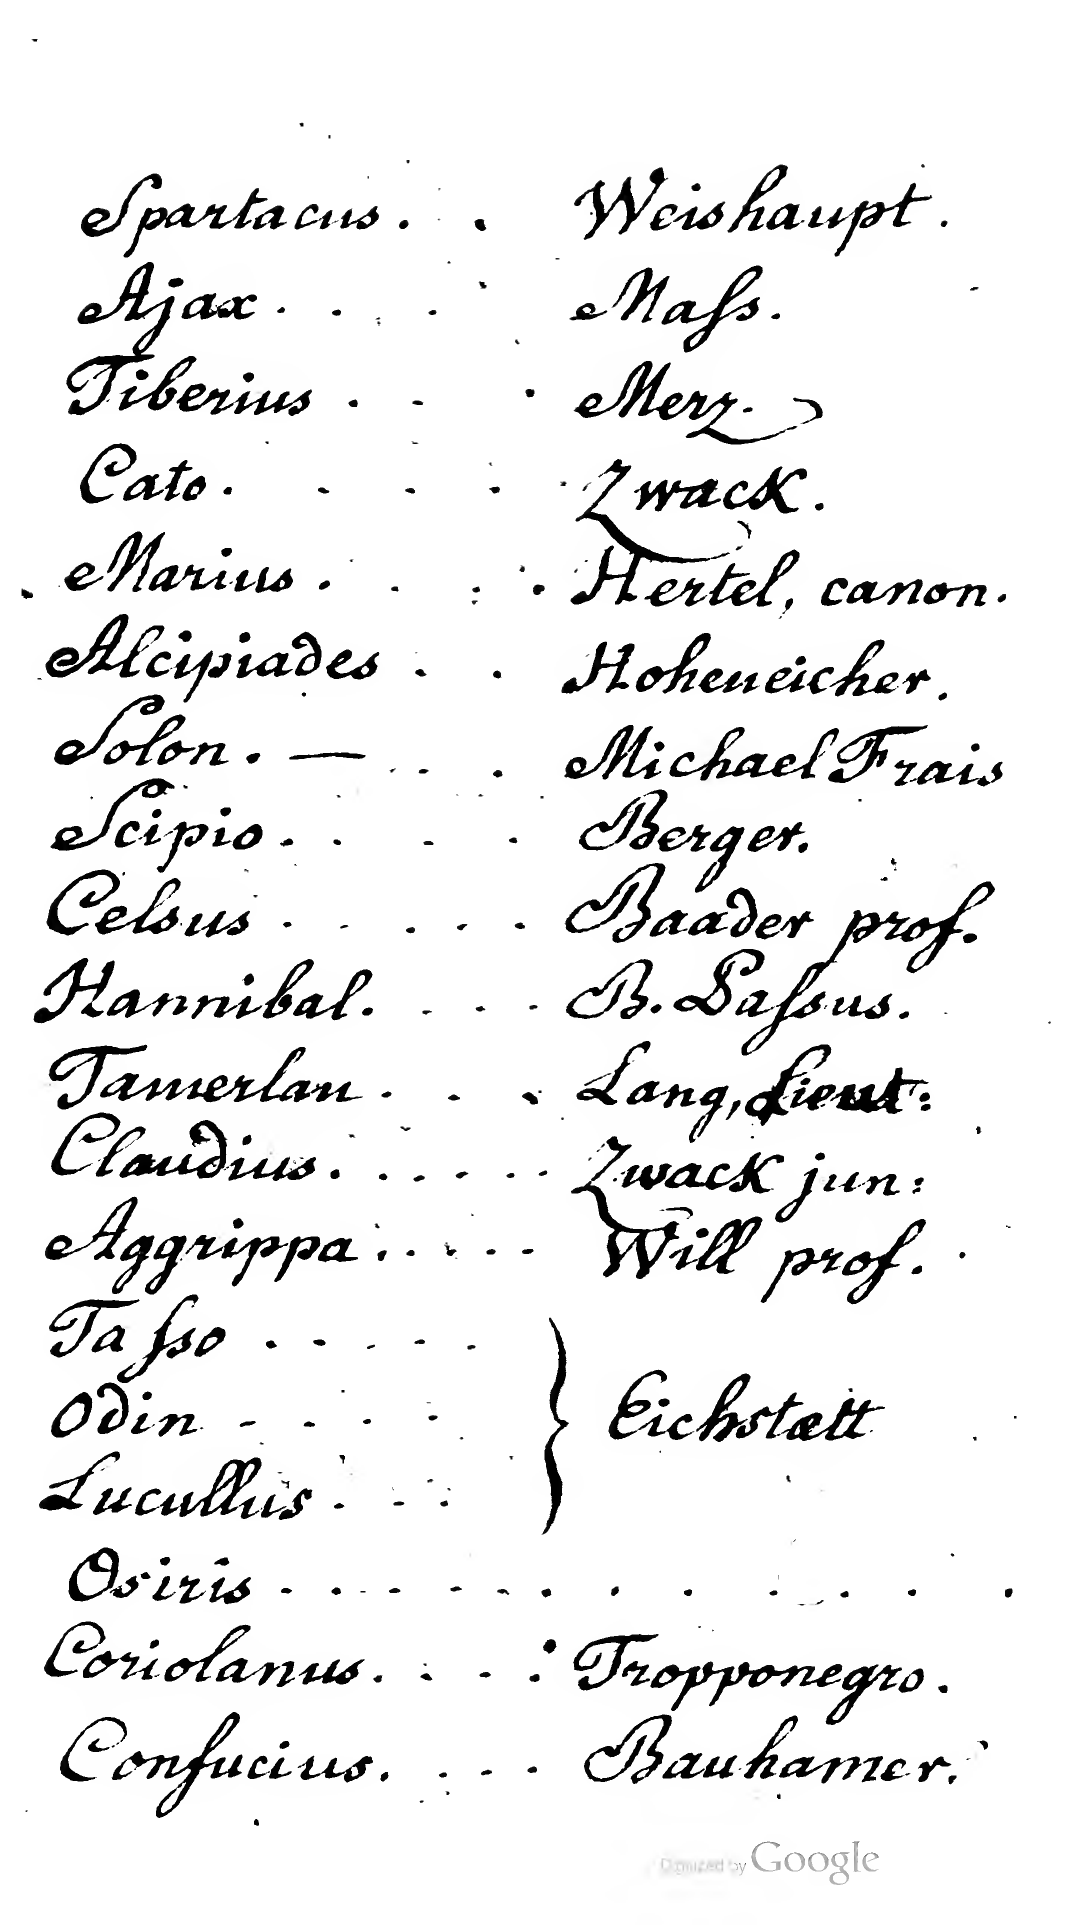 Spartacus. . Weishaupt.
Ajax . . . Maſs.
Tiberius . . . Merz.
Cato . . . . . Zwack.
Marius . . . . Hertel, canon.
Alcipiades . . Hoheneicher.
Solon. — . . . Michael Frais
Scipio . . . . Berger.
Celsus . . . . . Baader prof.
Hannibal. . . . . B. Baſsus.
Tamerlan . . . Lang, Lieut:
Claudius. . . . . . Zwack jun:
Aggrippa . . . . . Will prof.
Taſso . . . . .
Odin - . . .
Eichstætt
Lucullus . . .
Osiris . . . . . . . . . . . .
Coriolanus. . . . : Tropponegro.
Confucius. . . . Bauhamer.
Digitized by Google